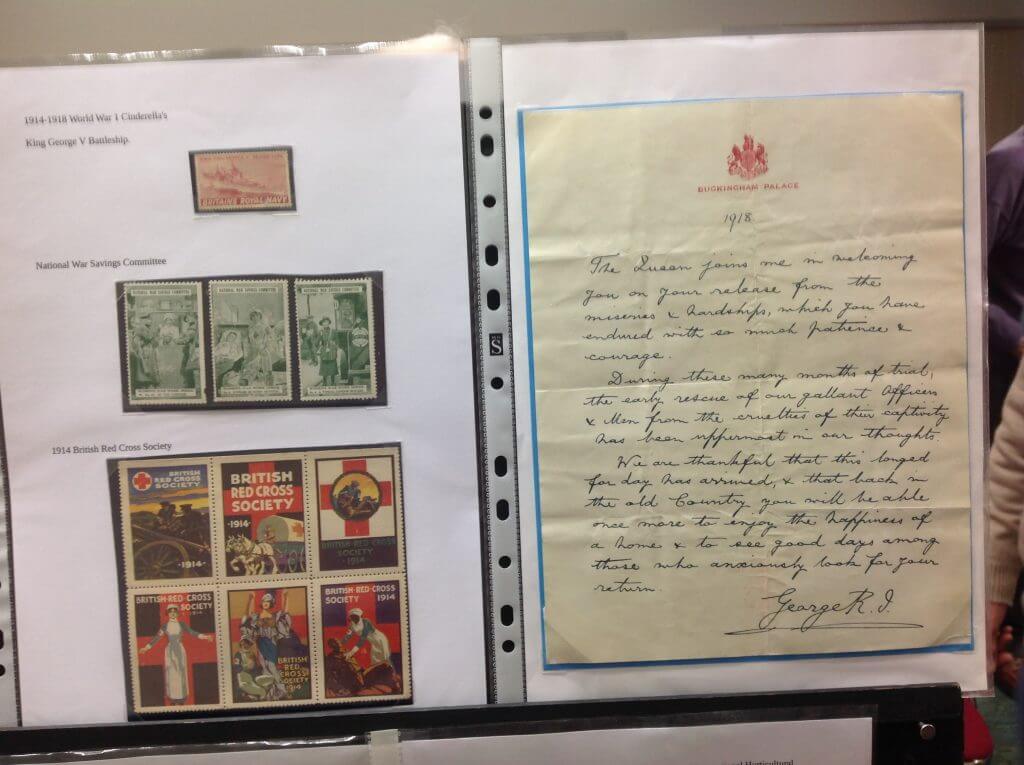 1914-1918 World War 1 Cinderella's
King George V Battleship.
BRITAINS ROYAL NAVY
National War Savings Committee
NATIONAL WAR SAVINGS COMMITTEE
NATIONAL WAR SAVINGS COMMITTEE
NATIONAL WAR SAVINGS COMMITTEE
1914 British Red Cross Society
BRITISH
RED CROSS
SOCIETY
·1914·
BRITISH
RED CROSS
SOCIETY
·1914·
BRITISH·RED·CROSS
SOCIETY·1914
BRITISH·RED·CROSS
SOCIETY 1914
BRITISH
RED CROSS
SOCIETY
1914
BRITISH·RED·CROSS
SOCIETY 1914
S
BUCKINGHAM PALACE
1918
The Queen joins me in welcoming
you on your release from the
miseries & hardships, which you have
endured with so much patience &
courage.
During these many months of trial,
the early rescue of our gallant Officers
& Men from the cruelties of their captivity
has been uppermost in our thoughts.
We are thankful that this longed
for day has arrived, & that back in
the old Country you will be able
once more to enjoy the happiness of
a home & to see good days among
those who anxiously look for your
return.
George R.I.
Horticultural